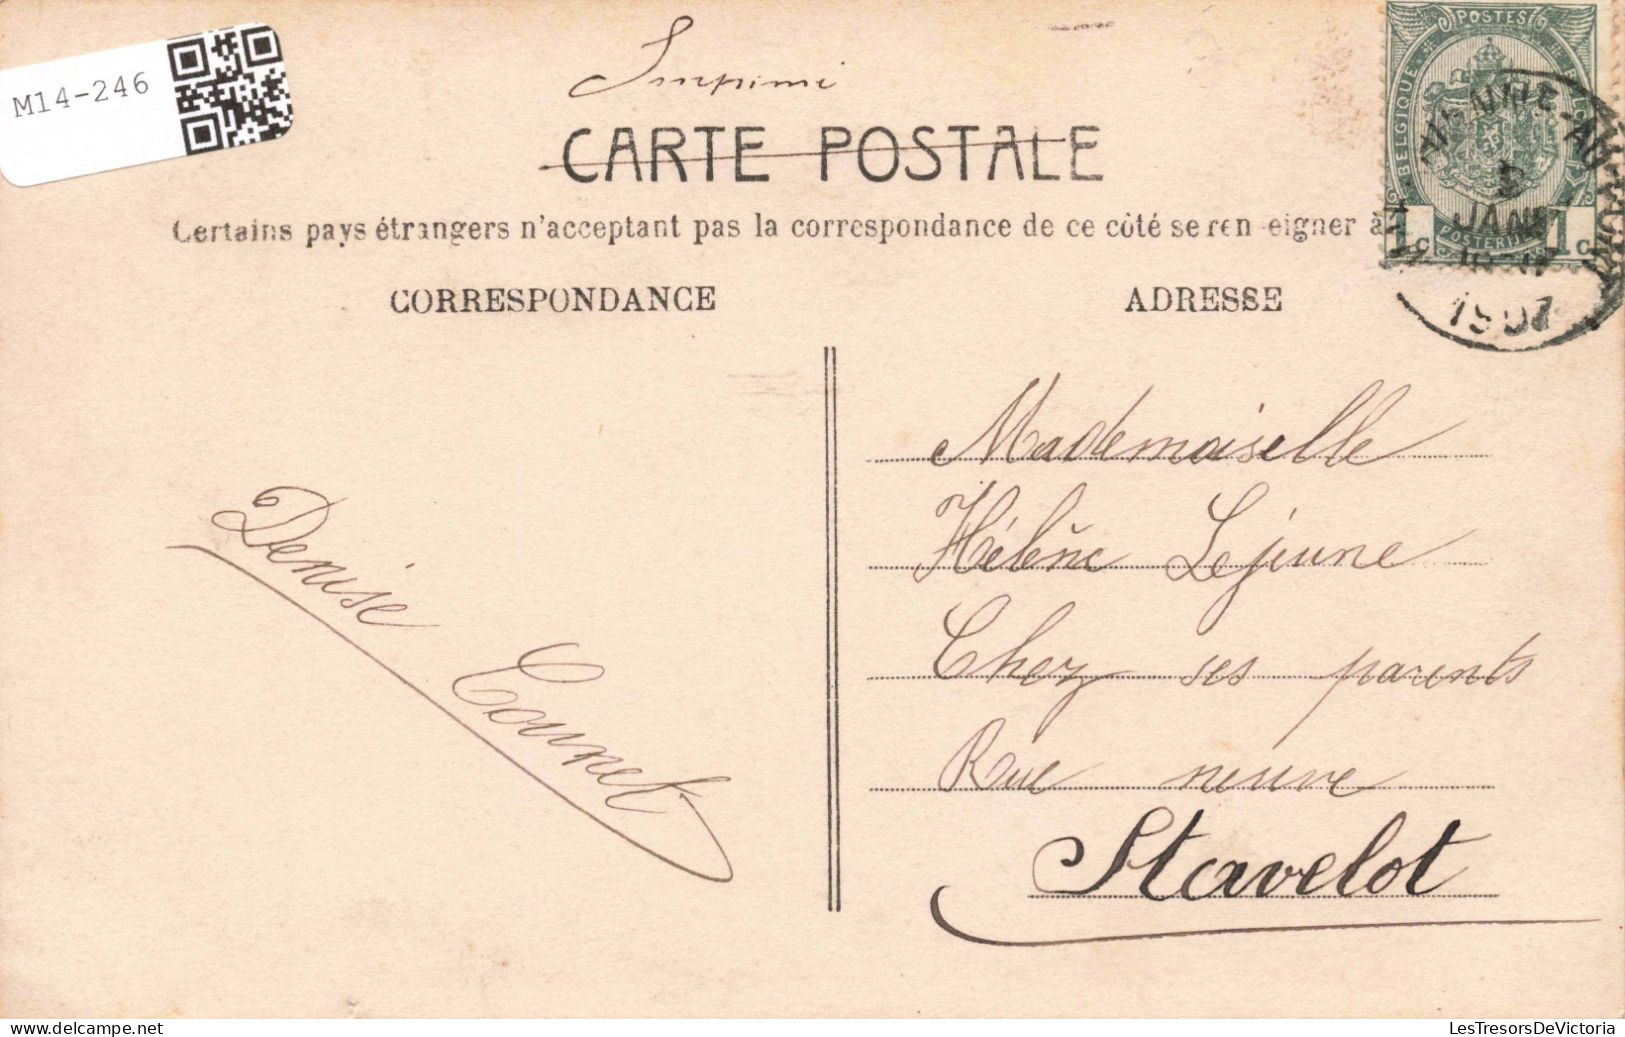 M14-246
Imprimé
CARTE POSTALE
Certains pays étrangers n'acceptant pas la correspondance de ce côté se renseigner à
CORRESPONDANCE
ADRESSE
POSTES
BELGIQUE
POSTERIJEN
1c 1c
JANV
1907
Mademoiselle
Hélène Lejeune
Chez ses parents
Rue neuve
Stavelot
Denise Cournet
delcampe.net
LesTresorsDeVictoria